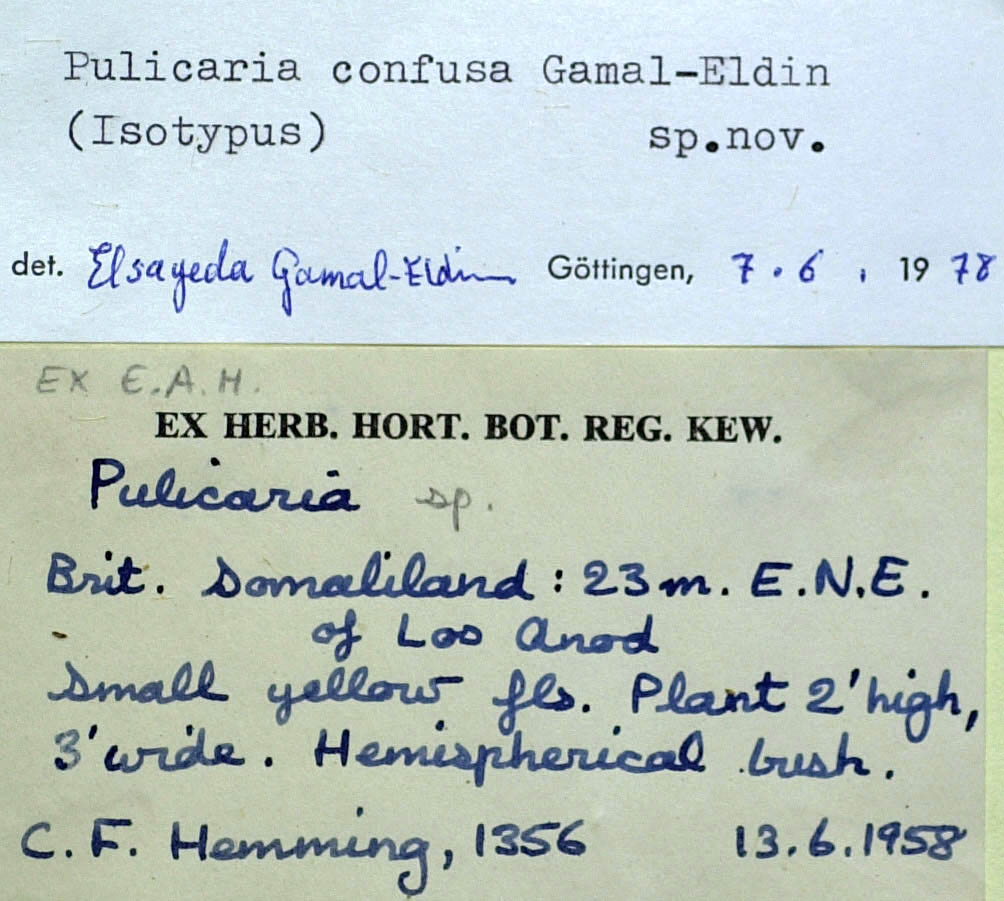 Pulicaria confusa Gamal-Eldin
(Isotypus) sp.nov.
det. Elsayeda Gamal-Eldin Göttingen, 7.6, 1978
EX E.A.H.
EX HERB. HORT. BOT. REG. KEW.
Pulicaria sp.
Brit. Somaliland: 23m. E.N.E.
of Las Anod
Small yellow fls. Plant 2' high,
3' wide. Hemispherical bush.
C.F. Hemming, 1356 13.6.1958